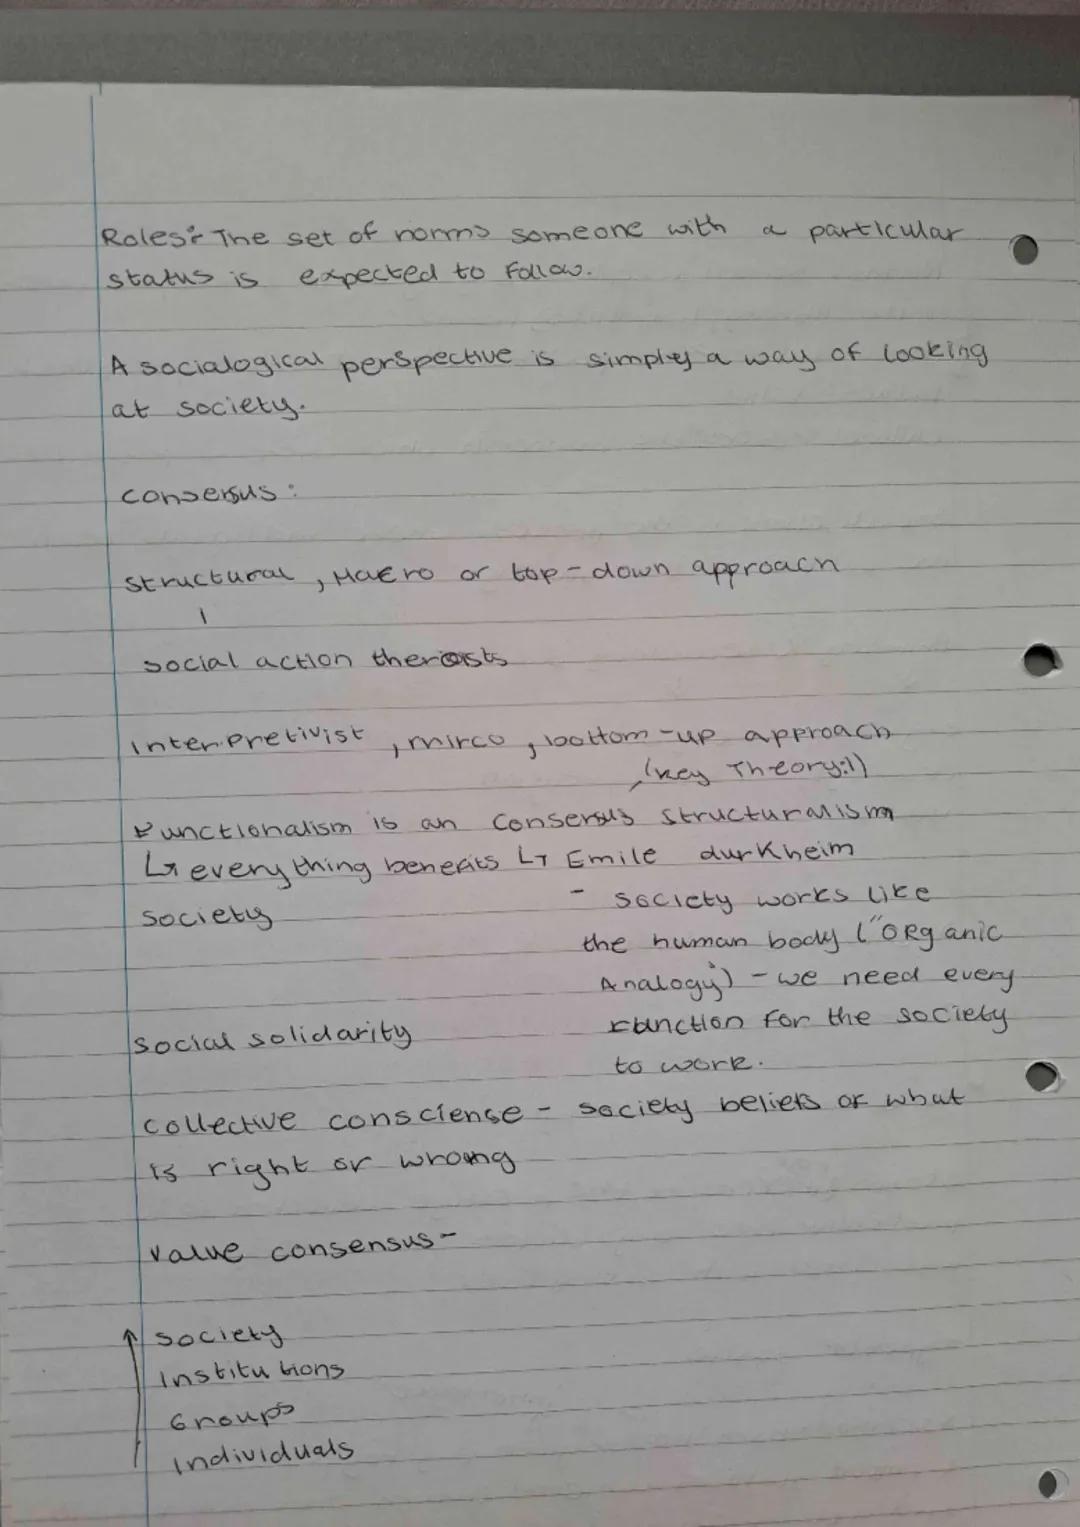 Roles: The set of norms someone with a particular
status is expected to follow.
A socialogical perspective is simply a way of looking
at society.
consersus :
structural , Macro or top-down approach
social action theroists
interpretivist , mirco , bottom-up approach
(key Theory:1)
Functionalism is an consersus structuralism
↳ everything benefits ↳ Emile durkheim
society
- society works like
the human body ("ORganic
Analogy") - we need every
function for the society
to work.
social solidarity
collective consciense - society beliefs of what
is right or wrong
value consensus-
society
institutions
Groups
individuals